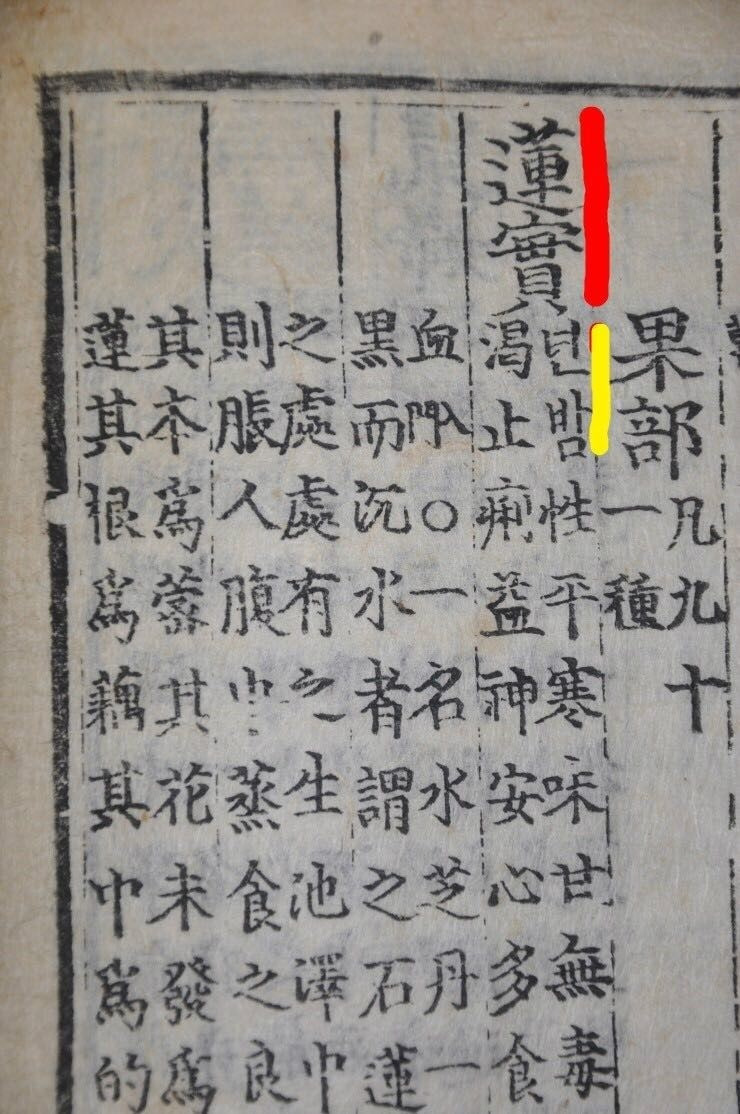 果部
凡九十
一種
蓮實
년밤性平寒味甘無毒
渴止痢益神安心多食
血入門○一名水芝丹一
黑而沉水者謂之石蓮
之處處有之生池澤中
則脹人腹中蒸食之良
其本爲蔤其花未發爲
蓮其根爲藕其中爲的